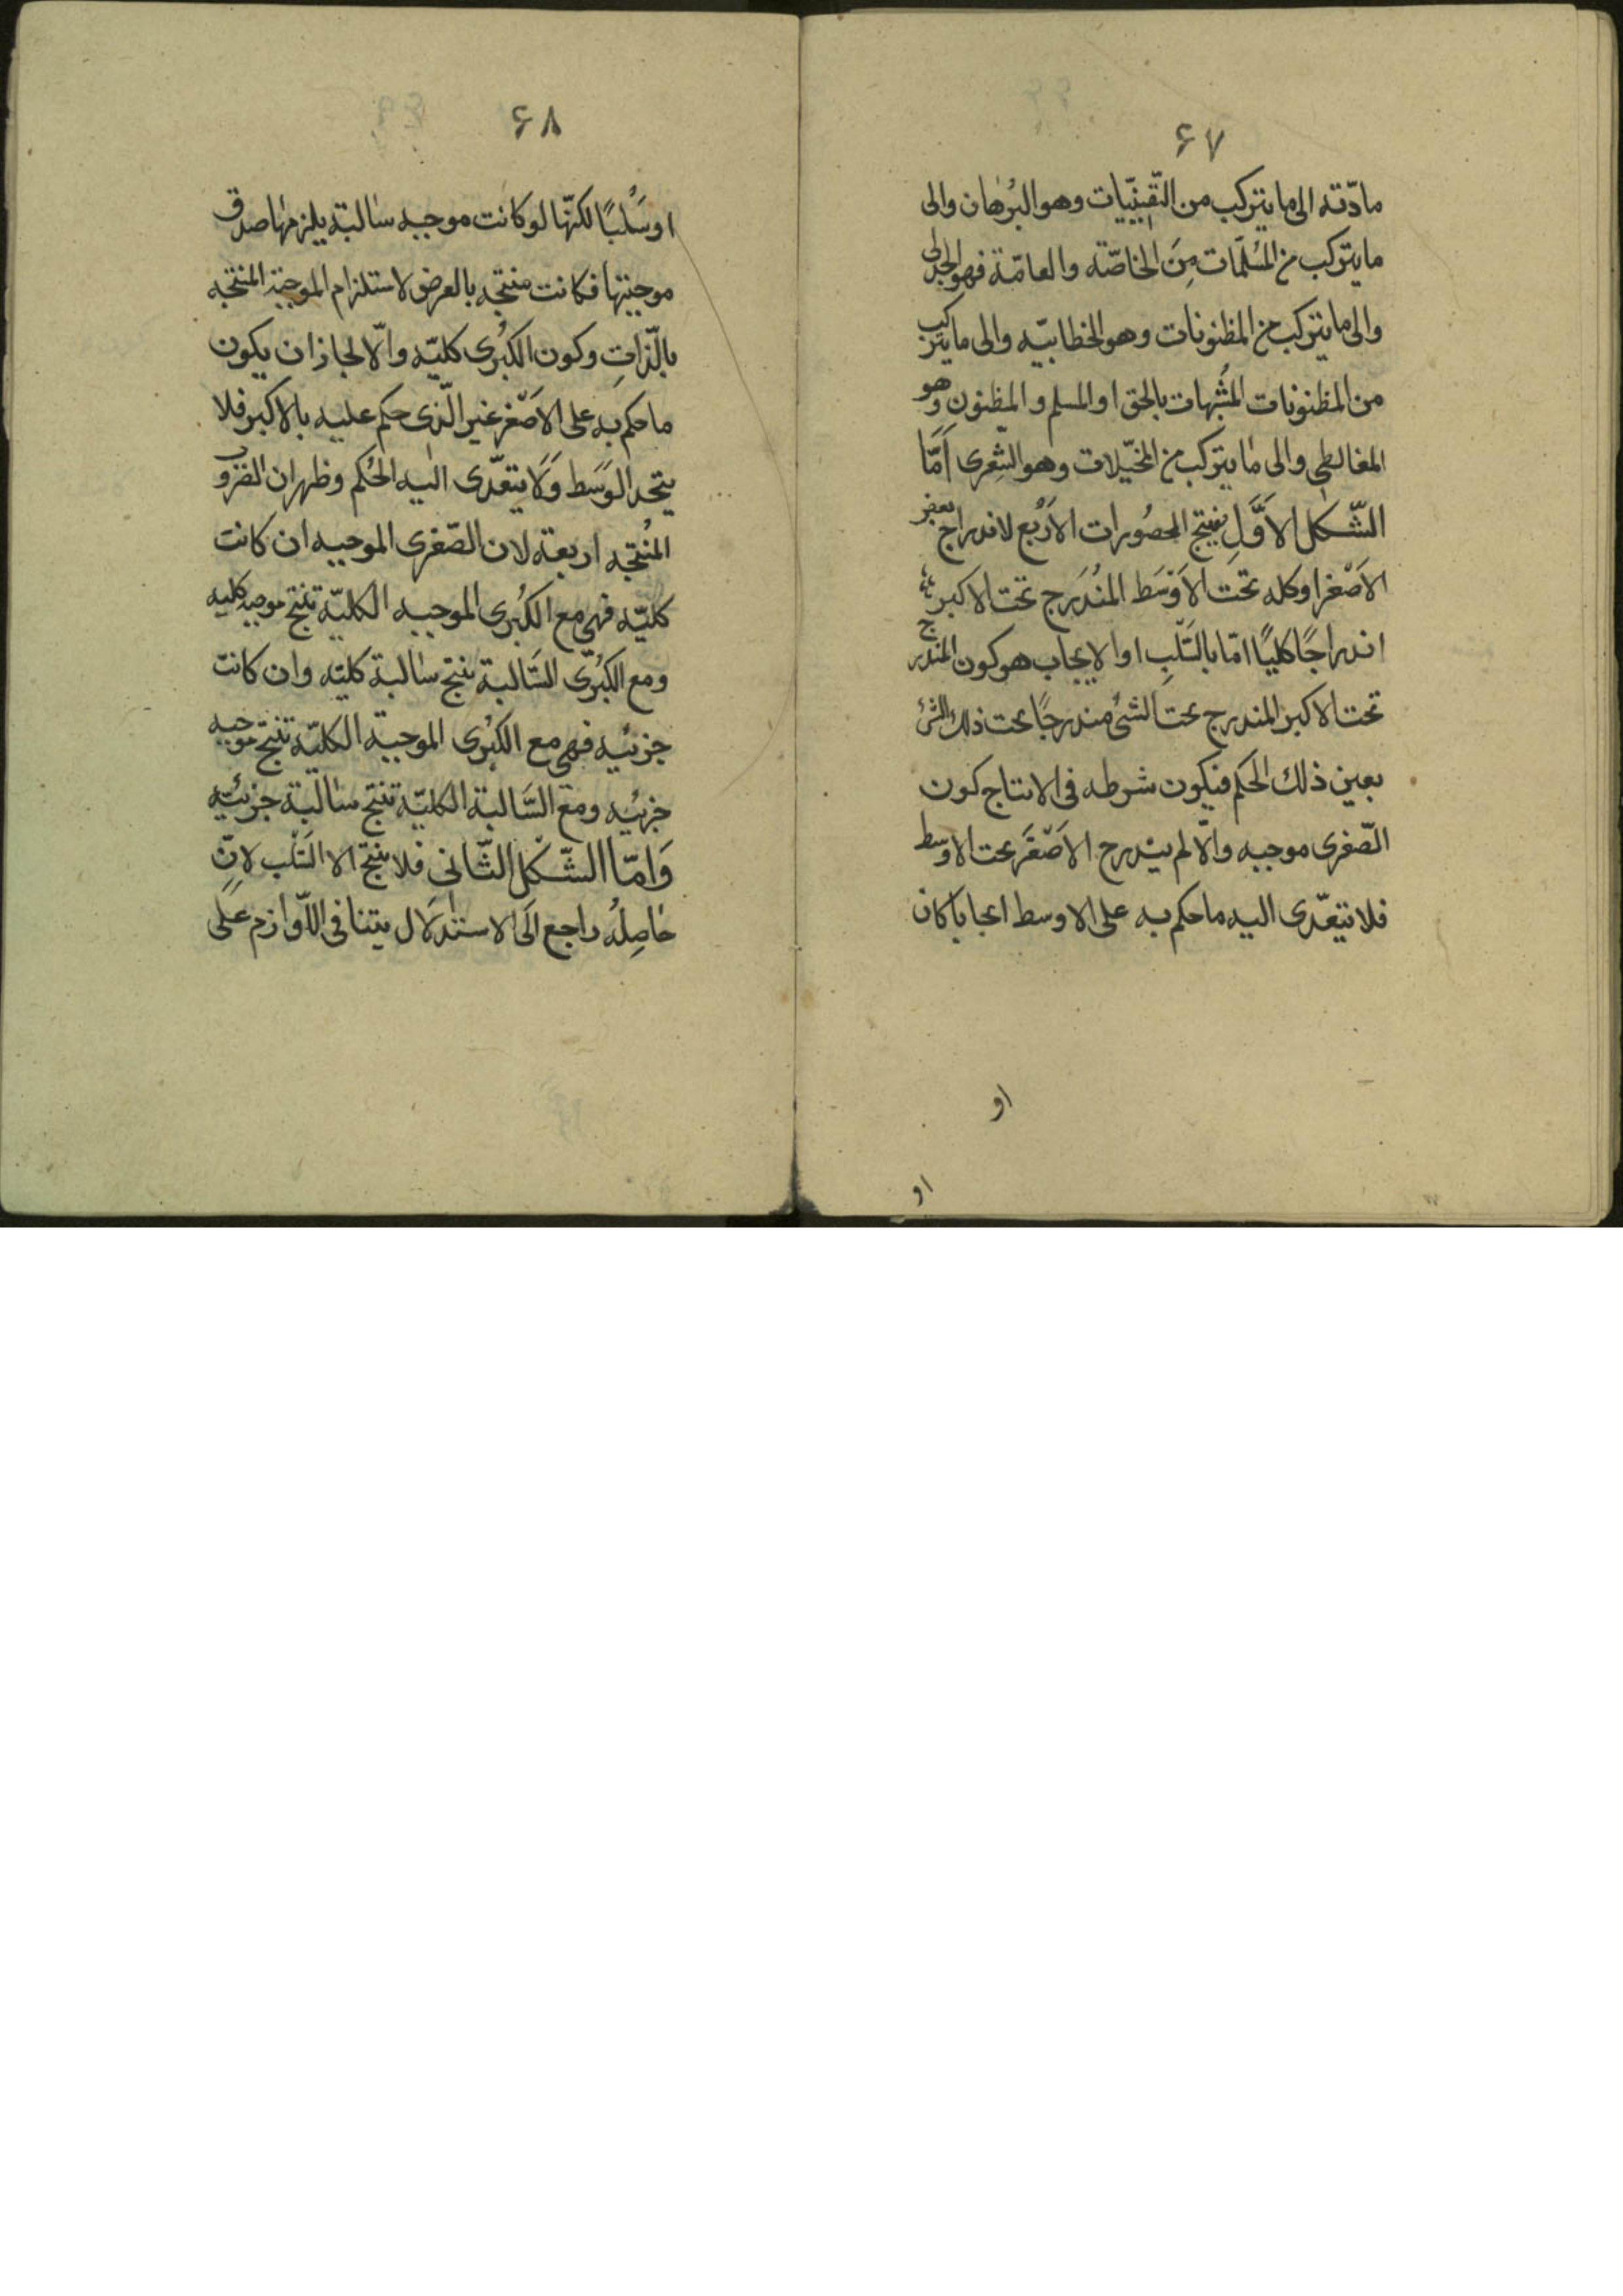 ۶۷
مادّته الى ما يتركب من اليّقينيّات وهو البُرهان والى
ما يتركب من المُسلّمات مِنَ الخاصّة والعامّة فهو الجدلى
والى ما يتركب من المظنونات وهو الخطابيّه والى ما يتركب
من المظنونات المُشبهات بالحق او المسلم والمظنون وهو
المغالطى والى ما يتركب من المخيّلات وهو الشعرى اَمّا
الشّكل الاَوَّلِ فينتج المحصُورات الاَرْبع لاندراج بعض
الاَصْغر او كله تحت الاَوْسَط المنُدَرج تحت الاكبر
اندراجًا كليًا امّا بالسَّلبِ او الايجاب هو كون المندرج
تحت الاكبر المندرج تحت الشئ مندرجًا تحت ذلك الشئ
بعين ذلك الحكم فيكون شرطه فى الانتاج كون
الصّغرى موجبه والّا لم يندرج الاَصْغَر تحت الاوسَط
فلا يتعّدى اليه ما حكم به على الاوسط ايجابا كان
او
او
۶۸
او سَلْبًا لكنّها لو كانت موجبه سالبة يلزمها صدق
موجبتها فكانت منتجه بالعرض لاستلزام الموجبة المنتجه
بالّذاتِ وكون الكبُرى كليّه والّا لجاز ان يكون
ما حكم به على الاصْغر غير الّذى حكم عليه بالاكبر فلا
يتحد الوَسَط وَلا يتعدّى اليه الحُكم وظهر ان الضروب
المنُتجه اربعة لان الصّغرى الموجبه ان كانت
كليّه فهى مع الكبُرى الموجبه الكليّة تنتج موجبه كليه
ومع الكبُرى السَّالبة ينتج سالبة كليّه وان كانت
جزئيه فهى مع الكبُرى الموجبة الكليّه تنتج موجبه
جزئيه ومع السَّالبة الكليّة تنتج سالبة جزئيّه
وَامّا الشّكل الثّانى فلا ينتج الا السَّلْب لانّ
حاصِلهُ راجع اِلَى الاستدلال بتنافى اللّوازم عَلى